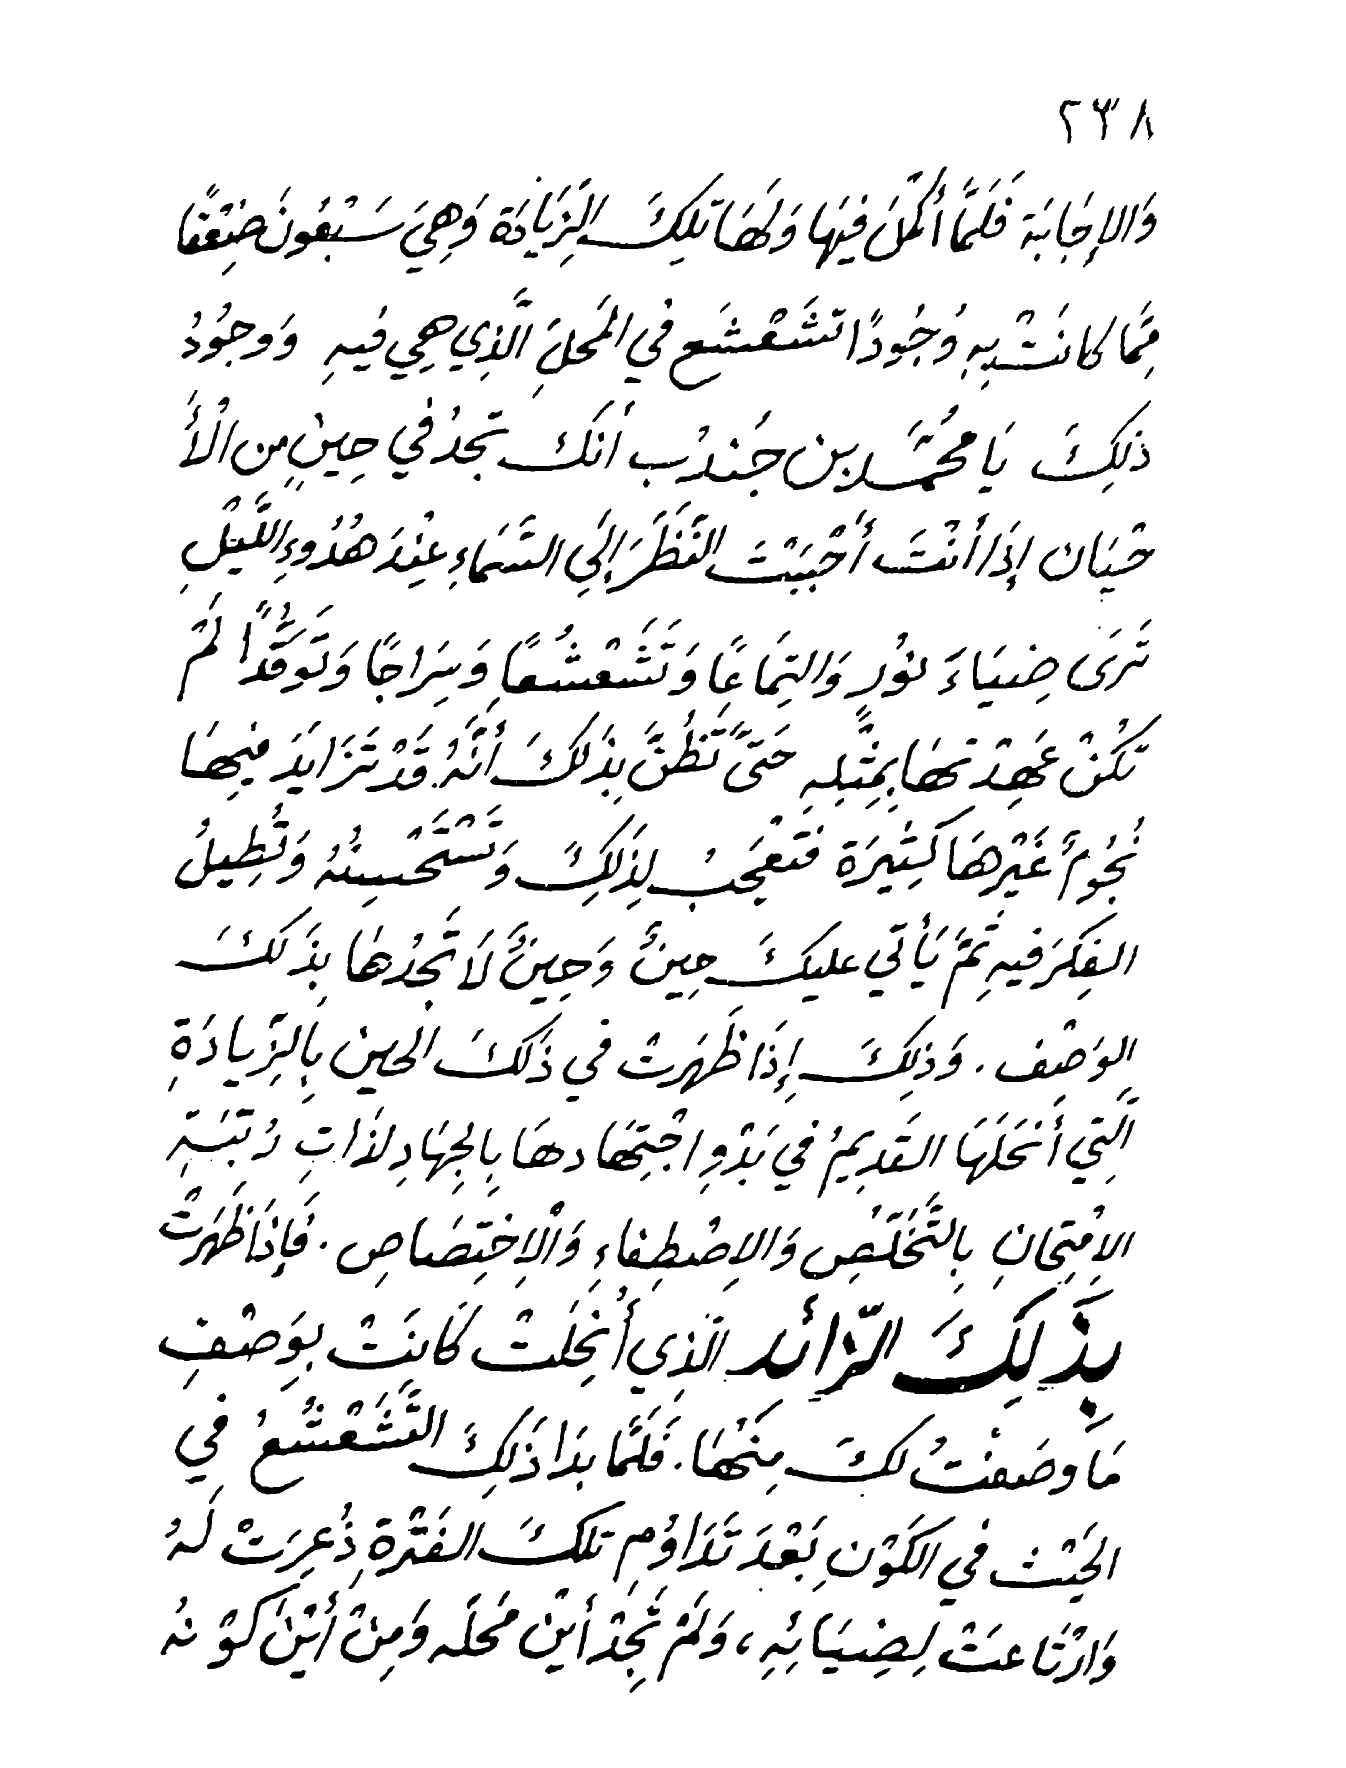 ٢٣٨
وَالإِجَابَة فَلَمَّا أُكْمَلَ فِيَها وَلَهَا تِلكَ الزِّيَادَة وَهِيَ سَبْعُونَ ضِعْفًا
مِمَّا كانَتْ بِهِ وُجُودًا تَشَعْشَع في المَحلِّ الَّذِي هِي فيهِ وَوجُودُ
ذلِكَ يَا محُمَّد بن جَندُب أنَكَ تجدُ في حِينٍ مِن الْأَ
حْيَان إذَا أنْتَ أحْبَبْتَ النَّظَرَ إلَى السَّمَاءِ عِنْدَ هُدُوءِ اللَّيْلِ
تَرَى ضِيَاءَ نوُرٍ وَالتِمَاعًا وَتَشَعْشُعًا وَسِرَاجًا وَتَوَقُّدًا لَمْ
تَكُنْ عَهِدْتهَا بِمِثْلِهِ حَتَّى تَظُنَّ بِذَلكَ أنَّهُ قَدْ تَزَايَدَ فيهَا
نُجُومٌ غَيْرهَا كَثِيرَة فتَعْجَبُ لِذَلِكَ وَتَسْتَحْسِنُهُ وَتُطِيلُ
الفِكرَ فيهِ ثمَّ يَأتي عليكَ حِينٌ وَحِينٌ لاَ تجدُهَا بِذَلكَ
الوَصْف. وَذلِكَ إذَا ظَهَرتْ في ذَلكَ الحين بِالزِّيادَةِ
الَّتِي أنْحَلَهَا القَدِيمُ في بَدْوِ اجْتِهَادهَا بِالجِهَادِ لذَاتِ رُتْبَةِ
الامْتِحانِ بِالتَّخَلُّصِ وَالاِصْطِفاءِ وَالْاِخْتِصَاصِ. فَإذَا ظَهَرَتْ
بِذَلِكَ الزّائد الّذِي أُنْحِلَتْ كَانَتْ بِوَصْفِ
مَا وصَفْتُ لكَ مِنَهْا. فَلَمَّا بدَا ذَلِكَ التَّشَعْشُعُ فِي
الحَيْث في الكَوْنِ بَعْدَ تَدَاوُمِ تلكَ الفَتْرَةِ ذُعِرَتْ لَهُ
وَارْتَاعتْ لِضِيَائِهِ، وَلَمْ تَجِدْ أيْن مَحَلّه وَمِنْ أَيْنَ كوْنهُ